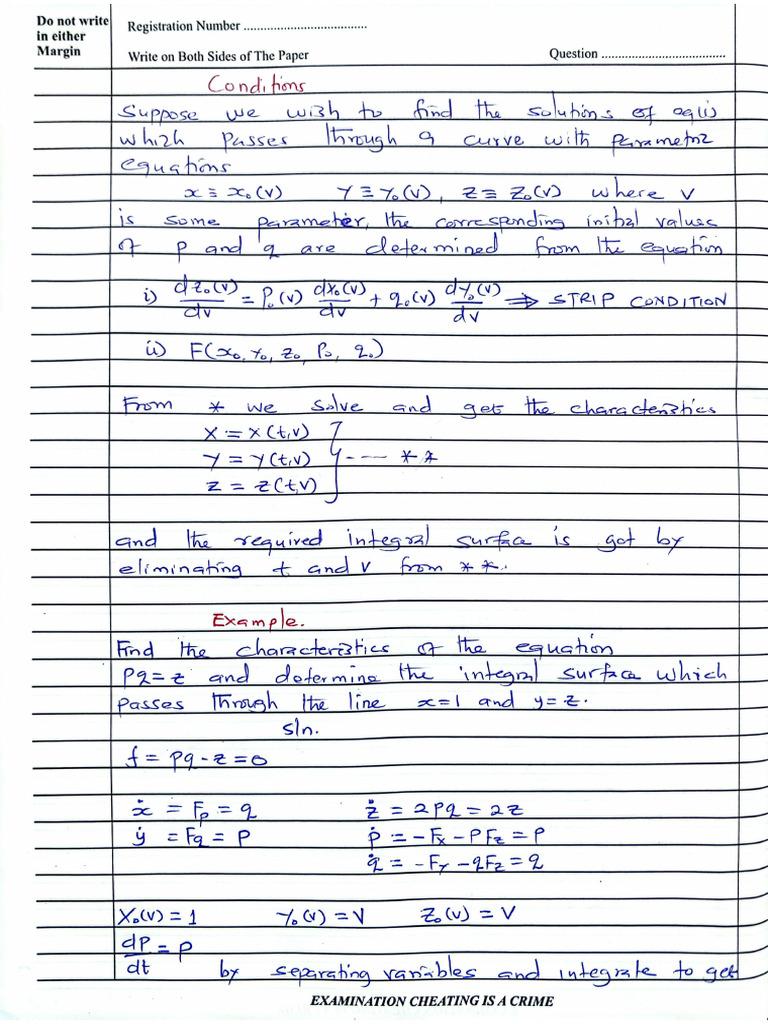 Do not write
in either
Margin
Registration Number .....................................
Write on Both Sides of The Paper
Question .....................................
Conditions
Suppose we wish to find the solutions of eq(i)
which passes through a curve with parametric
equations
x ≡ x₀(v)   Y ≡ Y₀(v), Z ≡ Z₀(v) where v
is some parameter, the corresponding initial values
of p and q are determined from the equation
i) dz₀(v)/dv = P₀(v) dx₀(v)/dv + q₀(v) dy₀(v)/dv ⇒ STRIP CONDITION
ii) F(x₀, Y₀, z₀, P₀, q₀)
From * we solve and get the characteristics
X = X(t,v)
Y = Y(t,v) } --- **
z = z(t,v)
and the required integral surface is got by
eliminating t and v from **.
Example.
Find the characteristics of the equation
Pq = z and determine the integral surface which
passes through the line x=1 and y=z.
sln.
f = pq - z = 0
ẋ = Fp = q   ż = 2Pq = 2z
ẏ = Fq = P   ṗ = -Fx - PFz = P
q̇ = -Fy - qFz = q
X₀(v) = 1   Y₀(v) = V   Z₀(v) = V
dP/dt = P
by separating variables and integrate to get
EXAMINATION CHEATING IS A CRIME